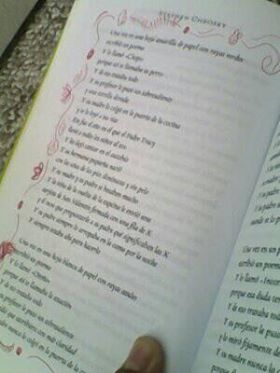 STEPHEN CHBOSKY
Una vez en una hoja amarilla de papel con rayas verdes
escribió un poema
Y lo llamó «Chop»
porque así se llamaba su perro
Y de eso trataba todo
Y su profesor le puso un sobresaliente
y una estrella dorada
Y su madre lo colgó en la puerta de la cocina
y se lo leyó a sus tías
Ese fue el año en el que el Padre Tracy
llevó a todos los niños al zoo
Y les dejó cantar en el autobús
Y su hermana pequeña nació
con las uñas de los pies diminutas y sin pelo
Y su madre y su padre se besaban mucho
Y la niña de la vuelta de la esquina le envió una
tarjeta de San Valentín firmada con una fila de X
y él tuvo que preguntarle a su padre qué significaban las X
Y su padre siempre le arropaba en la cama por la noche
Y siempre estaba ahí para hacerlo
Una vez en una hoja blanca de papel con rayas azules
escribió un poema
Y lo llamó «Otoño»
porque así se llamaba la estación
Y de eso trataba todo
Y su profesor le puso un sobresaliente
y le dijo que escribiera con más claridad
Y su madre no lo colgó en la puerta de la
Una vez en un
escribió un poema
Y lo llamó «Inocen
porque esa duda
Y de eso trataba
Y su profesor le puso
y lo miró fijamente d
Y su madre nunca lo